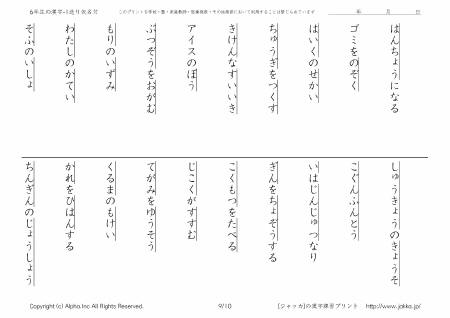 6年生の漢字+1送り仮名付
このプリントを学校・塾・家庭教師・医療機関・その他施設において利用することは禁じられています
年 月 日
はんちょうになる
ゴミをのぞく
はいくのせかい
ちゅうぎをつくす
きけんなすいいき
アイスのぼう
ぶつぞうをおがむ
もりのいずみ
わたしのかてい
そふのいしょ
しゅうきょうのきょうそ
こくんふんとう
いはじんじゅつなり
ぎんをちょぞうする
こくもつをたべる
じこくがすすむ
てがみをゆうそう
くるまのもけい
かれをひはんする
ちんぎんのじょうしょう
Copyright (c) Alpha.Inc All Rights Reserved.
9/10
[ジャッカ]の漢字練習プリント http://www.jakka.jp/